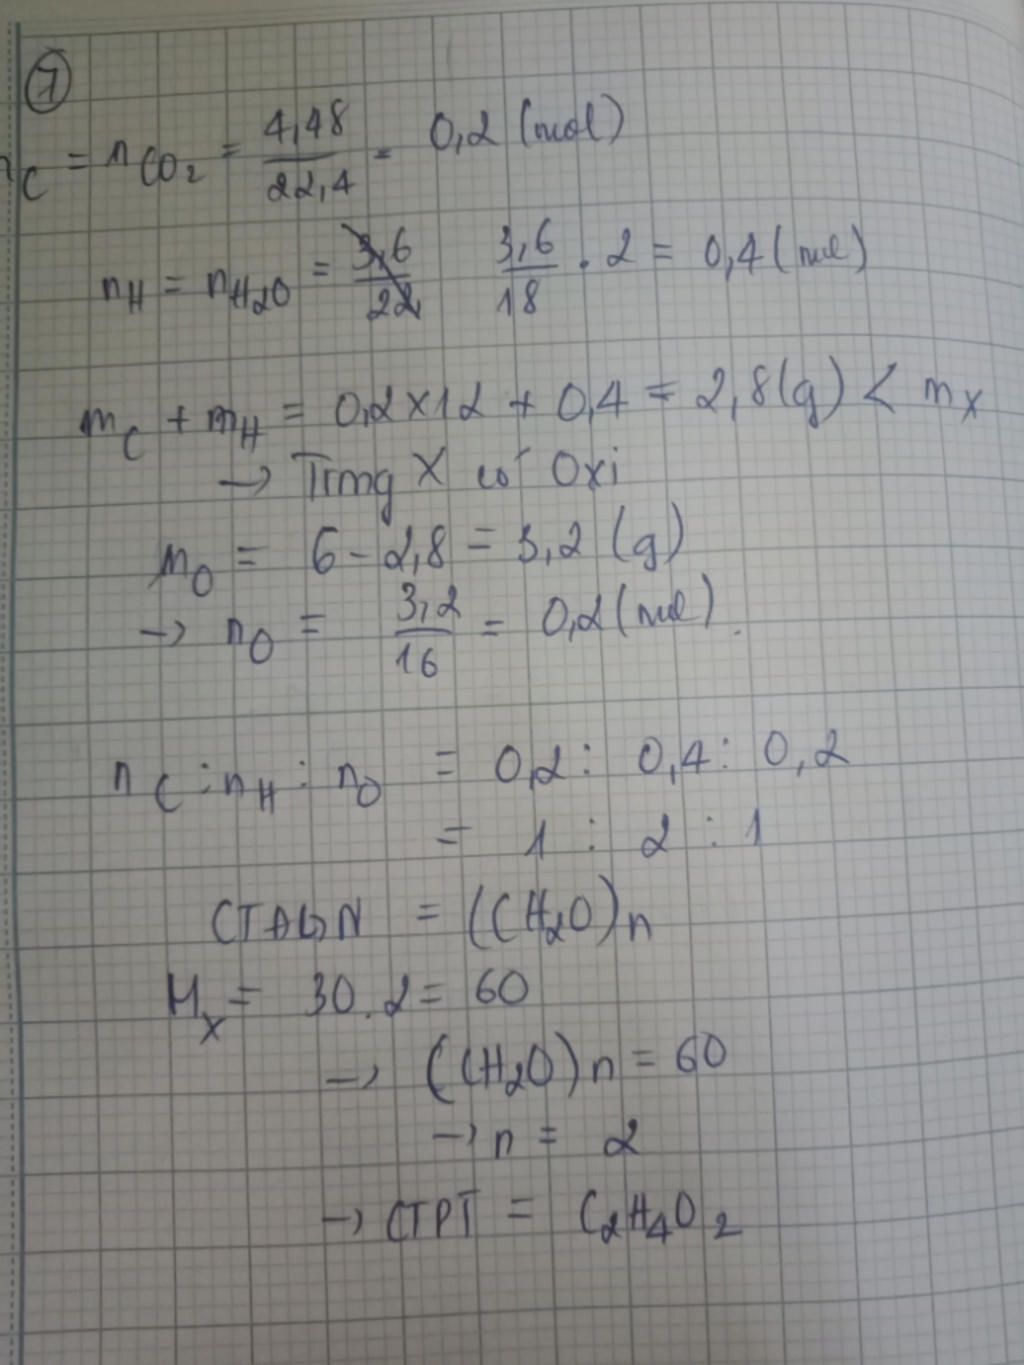 7
nC = nCO2 = 4,48/22,4 = 0,2 (mol)
nH = nH2O = 3,6/22 3,6/18 . 2 = 0,4 (mol)
mC + mH = 0,2x12 + 0,4 = 2,8 (g) < mX
→ Trong X có Oxi
mO = 6 - 2,8 = 3,2 (g)
→ nO = 3,2/16 = 0,2 (mol).
nC : nH : nO = 0,2 : 0,4 : 0,2
= 1 : 2 : 1
CTĐGN = (CH2O)n
MX = 30.2 = 60
→ (CH2O)n = 60
→ n = 2
→ CTPT = C2H4O2